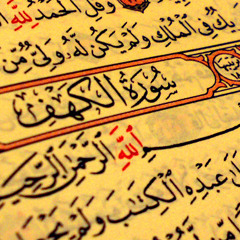 وَقُلِ الْحَمْدُ لِلَّهِ
يكٌ فِي الْمُلْكِ وَلَمْ يَكُنْ لَهُ وَلِيٌّ مِنَ
سُورَةُ الْكَهْفِ
اللَّهِ الرَّحْمَٰنِ الرَّحِيمِ
عَبْدِهِ الْكِتَابَ وَلَمْ يَجْعَل